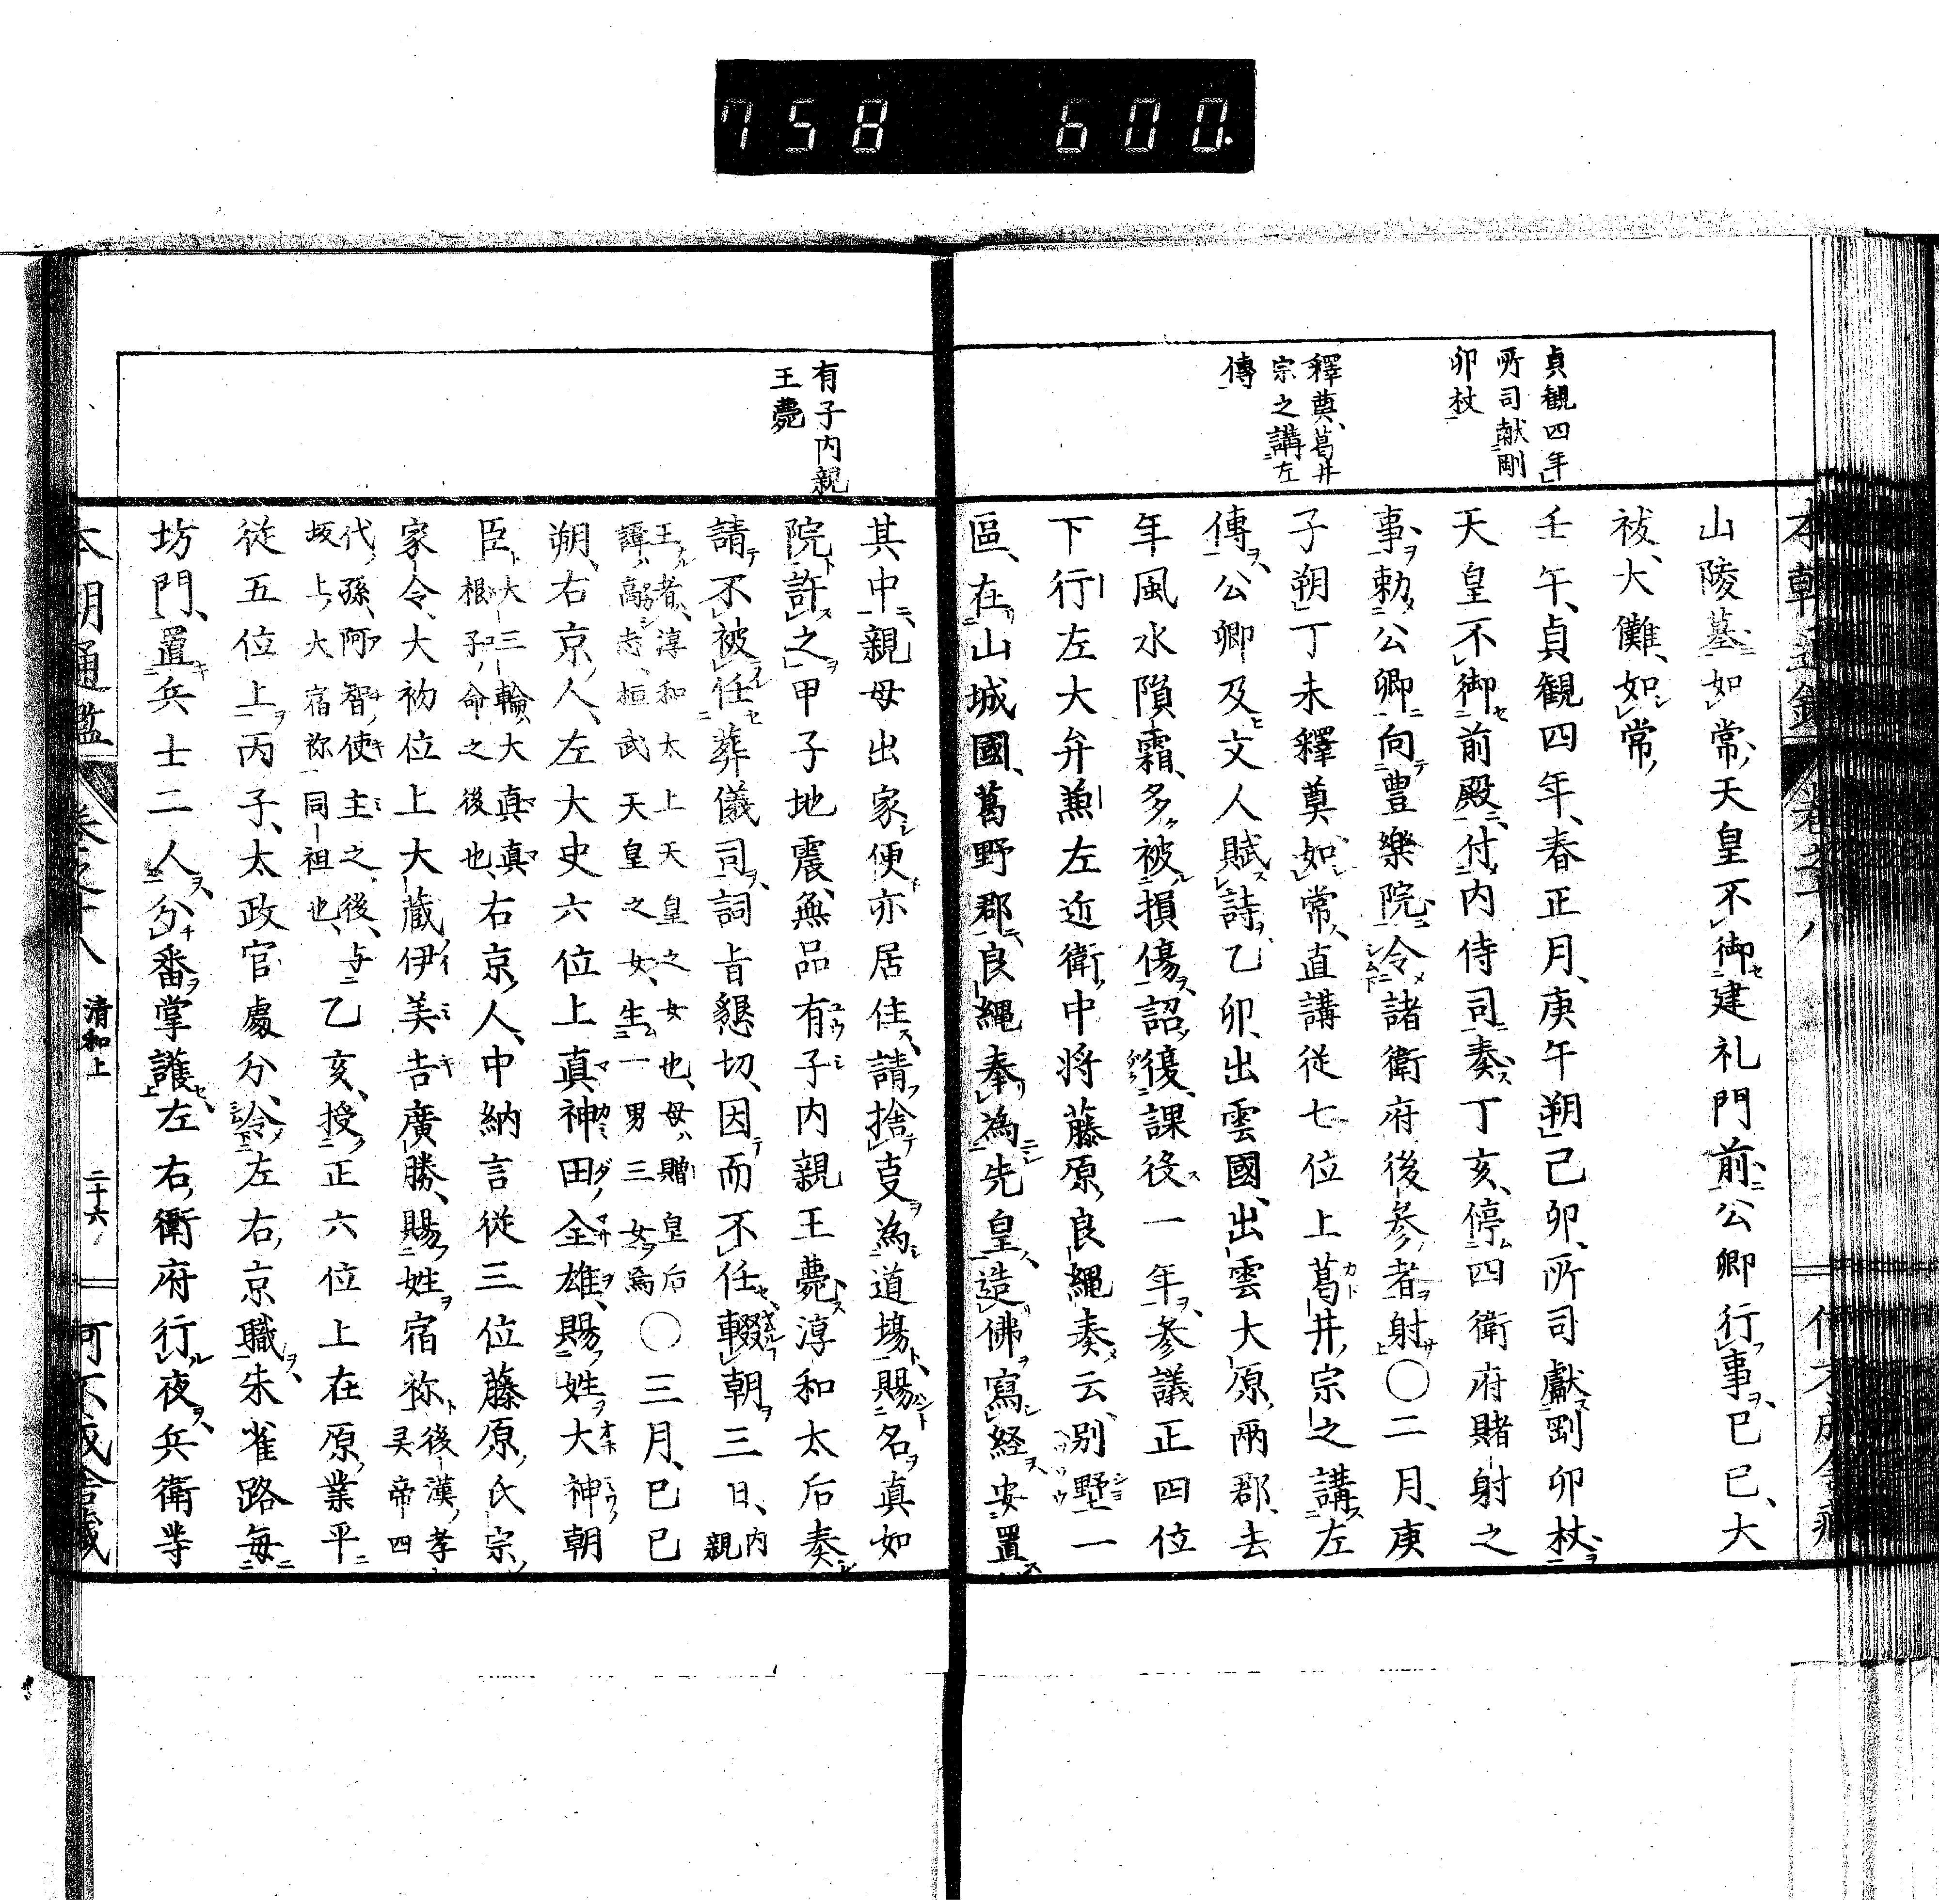 758 600.
貞観四年
所司献剛
卯杖
釋奠葛井
宗之講左
傳
山陵墓如常天皇不御建礼門前公卿行事己巳大
祓大儺如常
壬午貞観四年春正月庚午朔己卯所司獻剛卯杖
天皇不御前殿付内侍司奏丁亥停四衛府賭射之
事勅公卿向豊樂院令諸衛府後参者射〇二月庚
子朔丁未釋奠如常直講従七位上葛井宗之講左
傳公卿及文人賦詩乙卯出雲國出雲大原兩郡去
年風水隕霜多被損傷詔復課役一年参議正四位
下行左大弁兼左近衛中将藤原良縄奏云別墅一
區在山城國葛野郡良縄奉為先皇造佛寫経安置
有子内親
王薨
其中親母出家便亦居住請捨㕝為道場賜名真如
院許之甲子地震無品有子内親王薨淳和太后奏
請不被任葬儀司詞旨懇切因而不任輟朝三日内親
王者淳和太上天皇之女也母贈皇后
諱高志桓武天皇之女生一男三女焉〇三月己巳
朔右京人左大史六位上真神田全雄賜姓大神朝
臣大三輪大真真
根子命之後也右京人中納言従三位藤原氏宗
家令大初位上大蔵伊美吉廣勝賜姓宿祢後漢孝
㚑帝四
代孫阿智使主之後与
坂上大宿祢同祖也乙亥授正六位上在原業平
従五位上丙子太政官處分令左右京職朱雀路毎
坊門置兵士二人分番掌護左右衛府行夜兵衛等
本朝通鑑 卷之十八 清和上 二十六